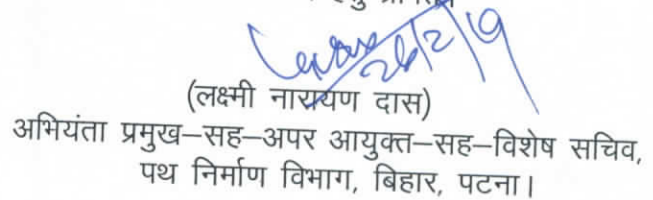 26/2/19
(लक्ष्मी नारायण दास)
अभियंता प्रमुख–सह–अपर आयुक्त–सह–विशेष सचिव,
पथ निर्माण विभाग, बिहार, पटना।